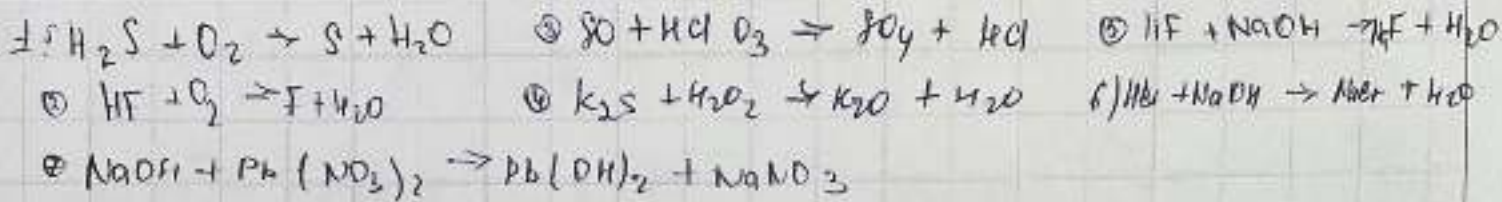 1) H₂S + O₂ → S + H₂O ③ SO + HClO₃ → SO₄ + HCl ⑤ HF + NaOH → + H₂O
② HF + O₂ → F + H₂O ④ K₂S + H₂O₂ → K₂O + H₂O 6) HBr + NaOH → NaBr + H₂O
NaOH + Pb(NO₃)₂ → Pb(OH)₂ + NaNO₃